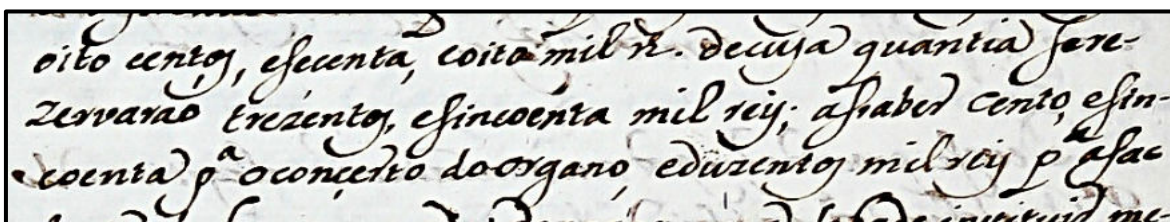 oito centos, esecenta, eoito mil r.ˢ decuja quantia sere-
zervarão trezentos, esincoenta mil reis; asaber cento, esin-
coenta p.ᵃ oconçerto doorgano, eduzentos mil reis p.ᵃ afac